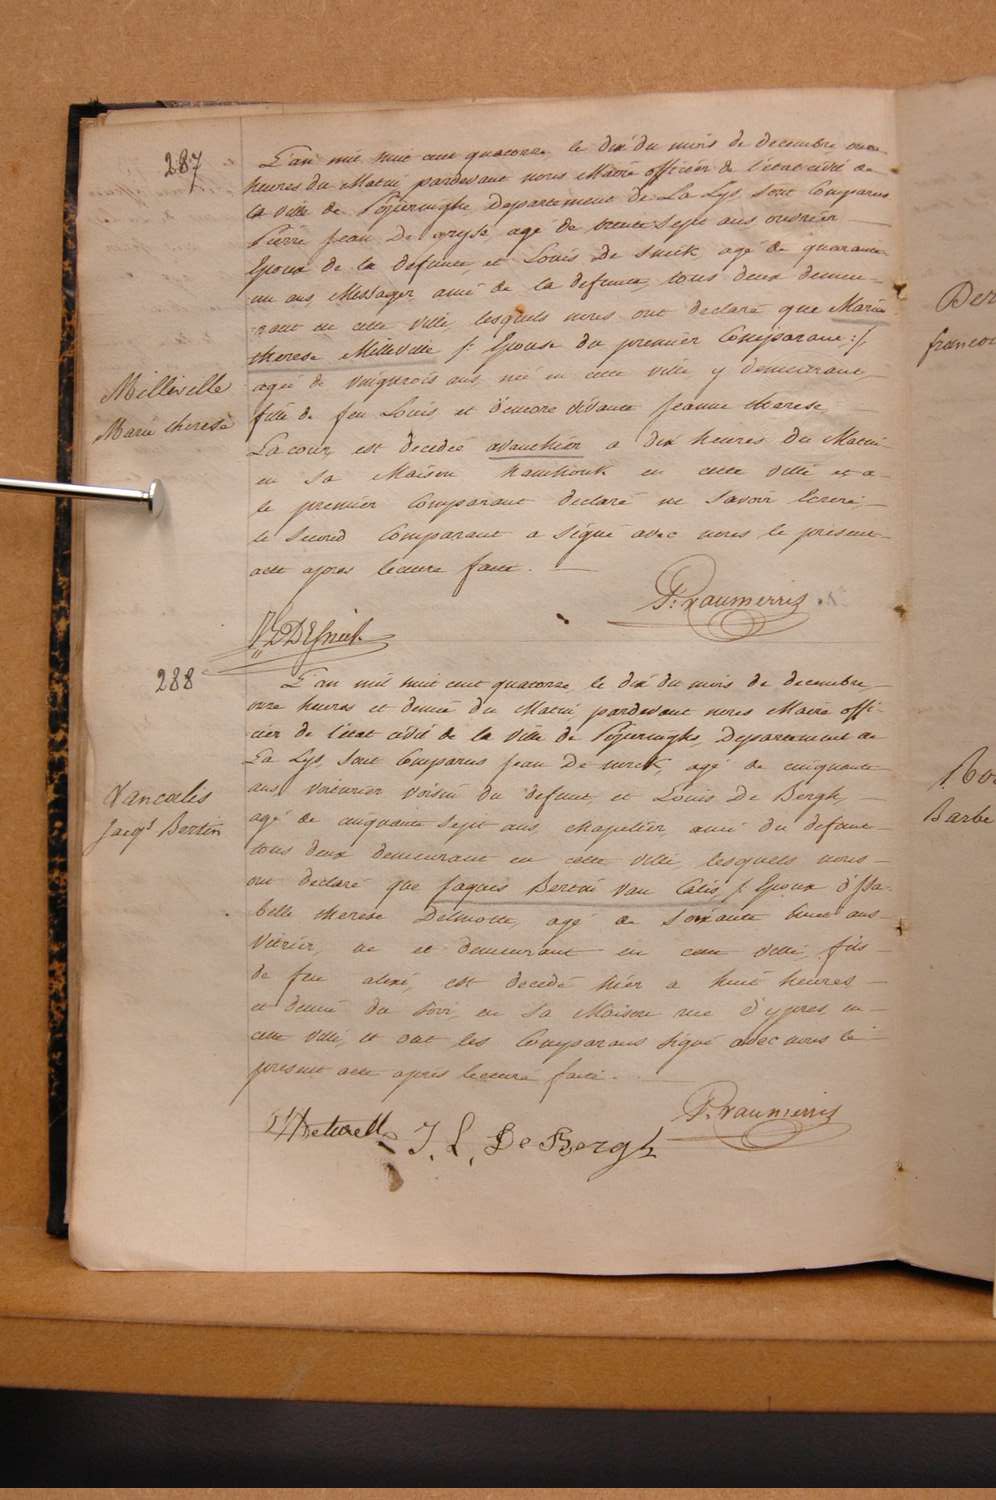 287
L'an mil huit cent quatorze, le dix du mois de decembre, onze
heures du Matin, pardevant nous Maire officier de l'état civil de
la ville de Poperinghe, Departement de La Lys, sont Comparus
Pierre Jean De gryse, agé de trente sept ans, ouvrier
Epoux de la defunte, et Louis De Snick, agé de quarante
un ans, Messager, ami de la defunte, tous deux demeu-
rant en cette ville, lesquels nous ont declaré que Marie
therese Milleville /: Epouse du premier Comparant :/
agée de vingtrois ans, née en cette ville y demeurant,
fille de feu Louis et d'encore vivante Jeanne therese
La cour, est decedée avanthier a dix heures du Matin
en sa Maison en cette ville et a
le premier Comparant declaré ne savoir Ecrire,
le second Comparant a signé avec nous le present
acte apres lecture faite.
Milleville
Marie therese
P. Vanmerris
L D DESnick
288
L'an mil huit cent quatorze, le dix du mois de decembre
onze heures et demie du Matin, pardevant nous Maire offi-
cier de l'état civil de la ville de Poperinghe, Departement de
La Lys, sont Comparus Jean De , agé de cinquante
ans, voiturier voisin du defunt, et Louis De Bergh,
agé de cinquante sept ans, chapelier, ami du defunt
tous deux demeurant en cette ville, lesquels nous
ont declaré que Jaques Bertin Van Calis, /: Epoux d'Isa-
belle therese Delmotte, agé de soixante ans
vitrier, né et demeurant en cette ville, fils
de feu alexi, est decedé hier a huit heures
et demie du soir, en sa Maison rue d'ypres, en
cette ville, et ont les Comparans signé avec nous le
present acte apres lecture faite.
Vancalis
Jacqs Bertin
P. Vanmerris
J. L. De Bergh
Der
francoi
Barbe